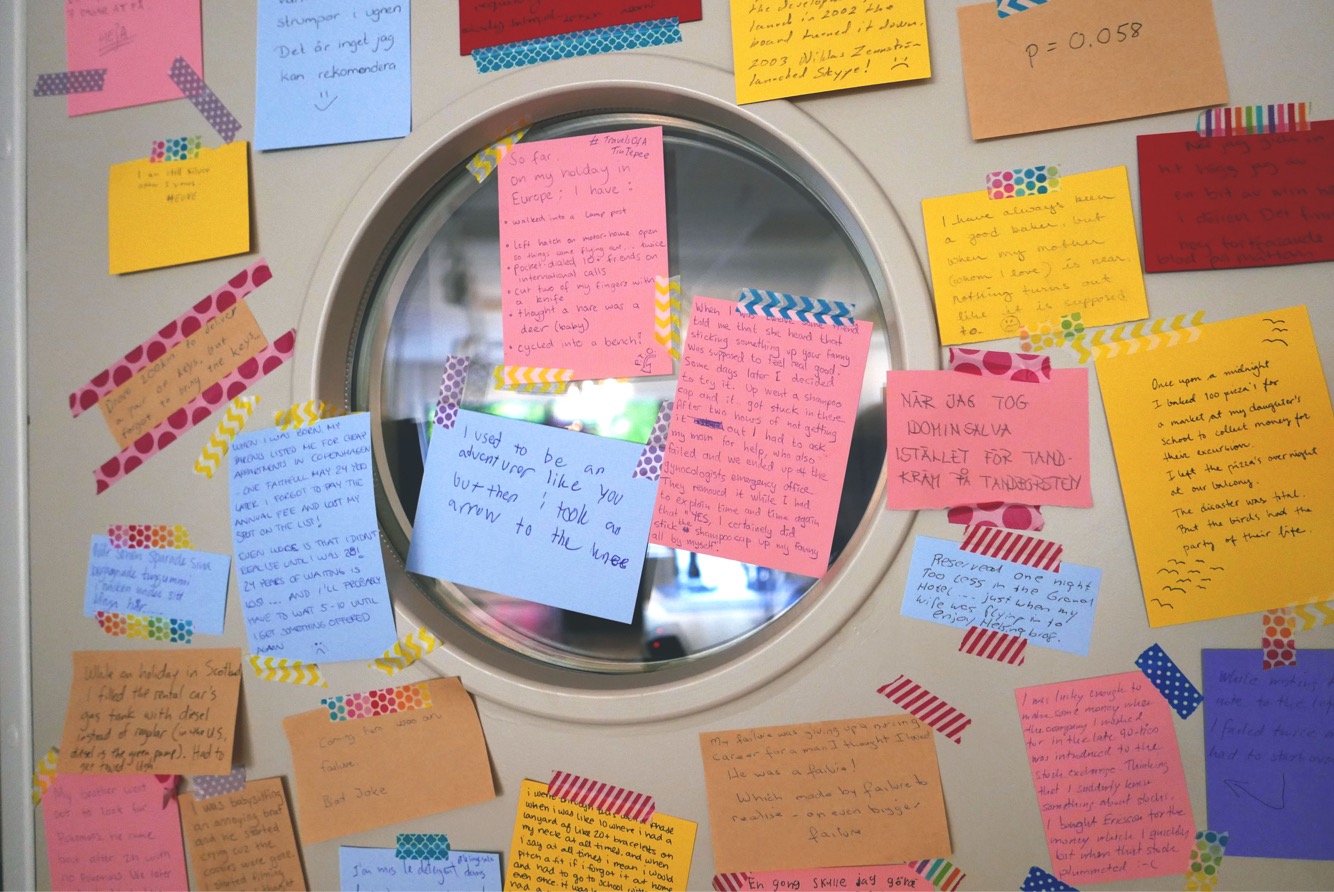 strumpor i ugnen
Det är inget jag
kan rekomendera
launch in 2002 the
board turned it down.
2003 Niklas Zennström
launched Skype!
p = 0.058
I am still
after
#TravelsOfA
TinTepee
So far
on my holiday in
Europe; I have:
• walked into a lamp post
• Left hatch on motor-home open
so things came flying out... twice
• Pocket-dialed 10+ friends on
international calls
• Cut two of my fingers with
a knife
• thought a hare was a
deer (baby)
• cycled into a bench!
I have always been
a good baker, but
when my mother
(whom I love) is near,
nothing turns out
like it is supposed
to.
en bit
i dörren. Det
Drove 200km to deliver
a pair of keys, but
forgot to bring the keys...
When I was twelve some friend
told me that she heard that
sticking something up your fanny
was supposed to feel real good.
Some days later I decided
to try it. Up went a shampoo
cap and it got stuck in there.
After two hours of not getting
it out I had to ask
my mom for help, who also
failed and we ended up at the
gynocologists emergency office.
They removed it while I had
to explain time and time again
that "YES, I certainly did
stick the shampoo cap up my fanny
all by myself."
I used to be an
adventurer like you
but then i took an
arrow to the knee
NÄR JAG TOG
IDOMINSALVA
ISTÄLLET FÖR TAND-
KRÄM PÅ TANDBORSTEN
Once upon a midnight
I baked 100 pizza's for
a market at my daughter's
school to collect money for
their excursion.
I left the pizza's over night
at our balcony.
The disaster was total.
But the birds had the
party of their life.
WHEN I WAS BORN, MY
PARENTS LISTED ME FOR CHEAP
APARTMENTS IN COPENHAGEN
- ONE FAITHFUL MAY 24 YEARS
LATER I FORGOT TO PAY THE
ANNUAL FEE AND LOST MY
SPOT ON THE LIST!
EVEN WORSE IS THAT I DIDN'T
REALISE UNTIL I WAS 28!
24 YEARS OF WAITING IS
LOST.... AND I'LL PROBABLY
HAVE TO WAIT 5-10 UNTIL
I GET SOMETHING OFFERED
AGAIN
Reserved one night
too less in the Grand
Hotel... just when my
wife was flying in to
enjoy Helsingborg.
While on holiday in Scotland
I filled the rental car's
gas tank with diesel
instead of regular (in the U.S.
diesel is the green pump). Had to
get towed
Coming
failure
Bad Joke
My failure was giving up a nursing
career for a man I thought I loved
He was a failure!
Which made by failure to
realise - an even bigger
failure
I was lucky enough to
make some money when
the company I worked
for in the late 90-ties
was introduced to the
stock exchange. Thinking
that I suddenly knew
something about stocks,
I bought Ericsson for the
money which I quickly
but when that stock
plummeted :-(
While writing
note to the
I failed twice
had to start over
My brother went
out to look for
Bananas. he came
back after 2h with
no Bananas
was babysitting
an annoying brat
and he started
crying cuz the
cookies were gone
i went through this phase
when i was like 10 where i had a
lanyard of like 20+ bracelets on
my neck at all times. and when
i say at all times i mean i would
pitch a fit if i forgot it at home
and had to go to school with
even once. it was
En gång skulle jag göra